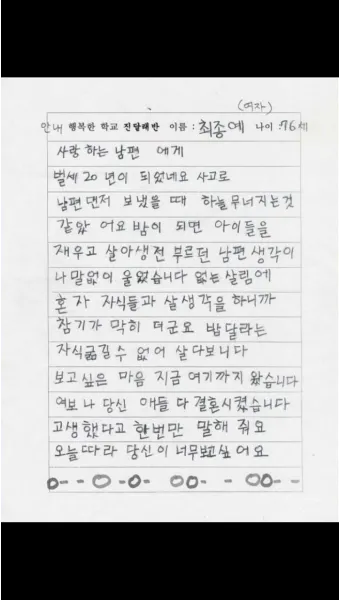 (여자)
안내 행복한 학교 진달래반 이름 : 최종예 나이 : 76세
사랑 하는 남편 에게
벌세 20 년이 되었네요 사고로
남편 댄저 보냈을 때 하늘 무너지는것
같았 어요 밤이 되면 아이들을
재우고 살아생전 부르던 남편 생각이
나 말없이 울었습니다 없는 살림에
혼 자 자식들과 살생각을 하니까
참기가 막히 더군요 밥달라는
자식굶길수 없어 살다보니다
보고싶은 마음 지금 여기까지 왔습니다
여보 나 당신 애들 다 결혼시켰습니다
고생했다고 한번만 말해 줘요
오늘따라 당신이 너무보고싶어요